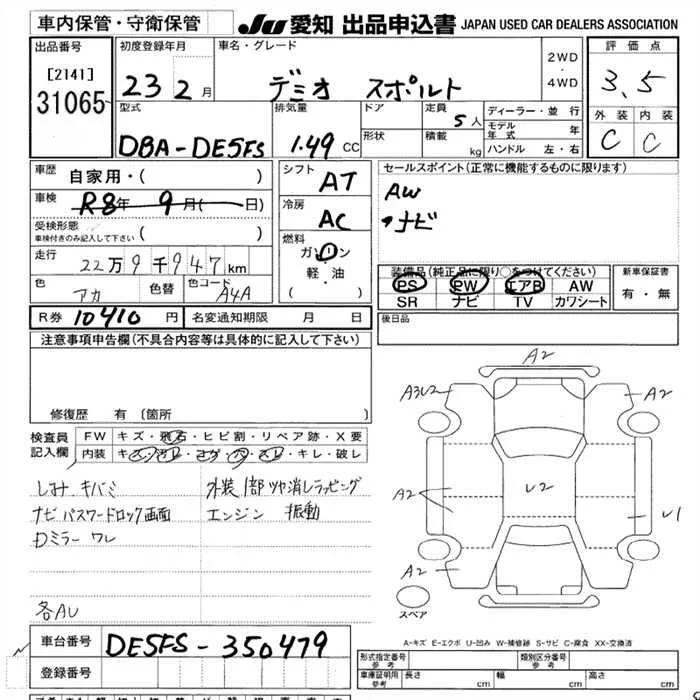 車内保管・守衛保管
JU 愛知 出品申込書 JAPAN USED CAR DEALERS ASSOCIATION
出品番号
[2141]
31065
初度登録年月
23 2月
車名・グレード
デミオ スポルト
2WD
・
4WD
評価点
3.5
外装 内装
C C
型式
DBA-DE5FS
排気量
1.49 CC
ドア
形状
定員
5人
積載
kg
ディーラー・並行
モデル年式 年
ハンドル 左・右
車歴
自家用・( )
車検
R8年 9月( 日)
受検形態
車検付きのみ記入して下さい ( )
走行
22万9千947km
色
アカ
色替
色コード
A4A
シフト
AT
冷房
AC
燃料
ガソリン
軽・油
( )
セールスポイント(正常に機能するものに限ります)
AW
ナビ
装備品(純正品に限り○をつけてください)
PS PW エアB AW
SR ナビ TV カワシート
新車保証書
有・無
R券 10410円
名変通知期限 月 日
後日品
注意事項申告欄(不具合内容等は具体的に記入して下さい)
修復歴 有(箇所 )
検査員
記入欄
FW キズ・飛石・ヒビ割・リペア跡・X要
内装 キズ・汚レ・コゲ・穴・スレ・キレ・破レ
シミ、キバミ
ナビ パスワードロック画面
Dミラー ワレ
外装1部ツヤ消しラッピング
エンジン 振動
各AU
A2
A3U2
A2
A2
U2
U1
A2
スペア
A-キズ E-エクボ U-凹み W-補修跡 S-サビ C-腐食 XX-交換済
車台番号
DE5FS-350479
登録番号
形式指定番号
参考
類別区分番号
参考
車庫証明用
参考
長さ cm
幅 cm
高さ cm